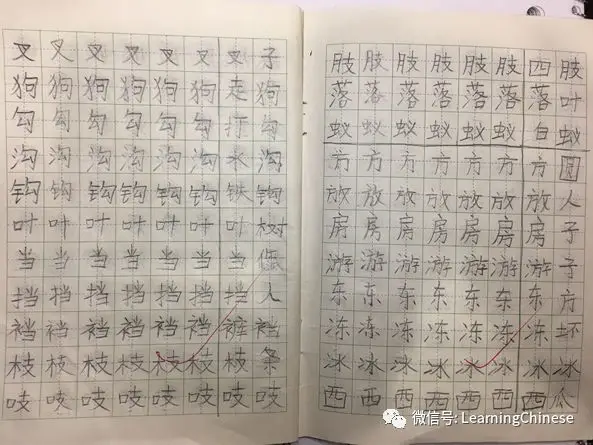 叉叉叉叉叉叉叉子
狗狗狗狗狗狗走狗
勾勾勾勾勾勾打勾
沟沟沟沟沟沟水沟
钩钩钩钩钩钩铁钩
叶叶叶叶叶叶叶树
当当当当当当当
挡挡挡挡挡挡挡人
裆裆裆裆裆裆裤裆
枝枝枝枝枝枝枝条
吱吱吱吱吱吱吱吱
肢肢肢肢肢肢四肢
落落落落落落落叶
蚁蚁蚁蚁蚁蚁白蚁
方方方方方方方圆
放放放放放放放人
房房房房房房房子
游游游游游游游子
东东东东东东东方
冻冻冻冻冻冻冻坏
冰冰冰冰冰冰冰冰
西西西西西西西瓜
微信号: LearningChinese